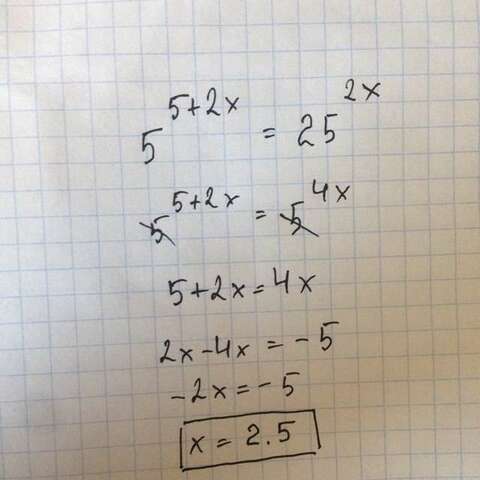 5^(5+2x) = 25^(2x)
5^(5+2x) = 5^(4x)
5+2x=4x
2x-4x = -5
-2x=-5
x = 2.5